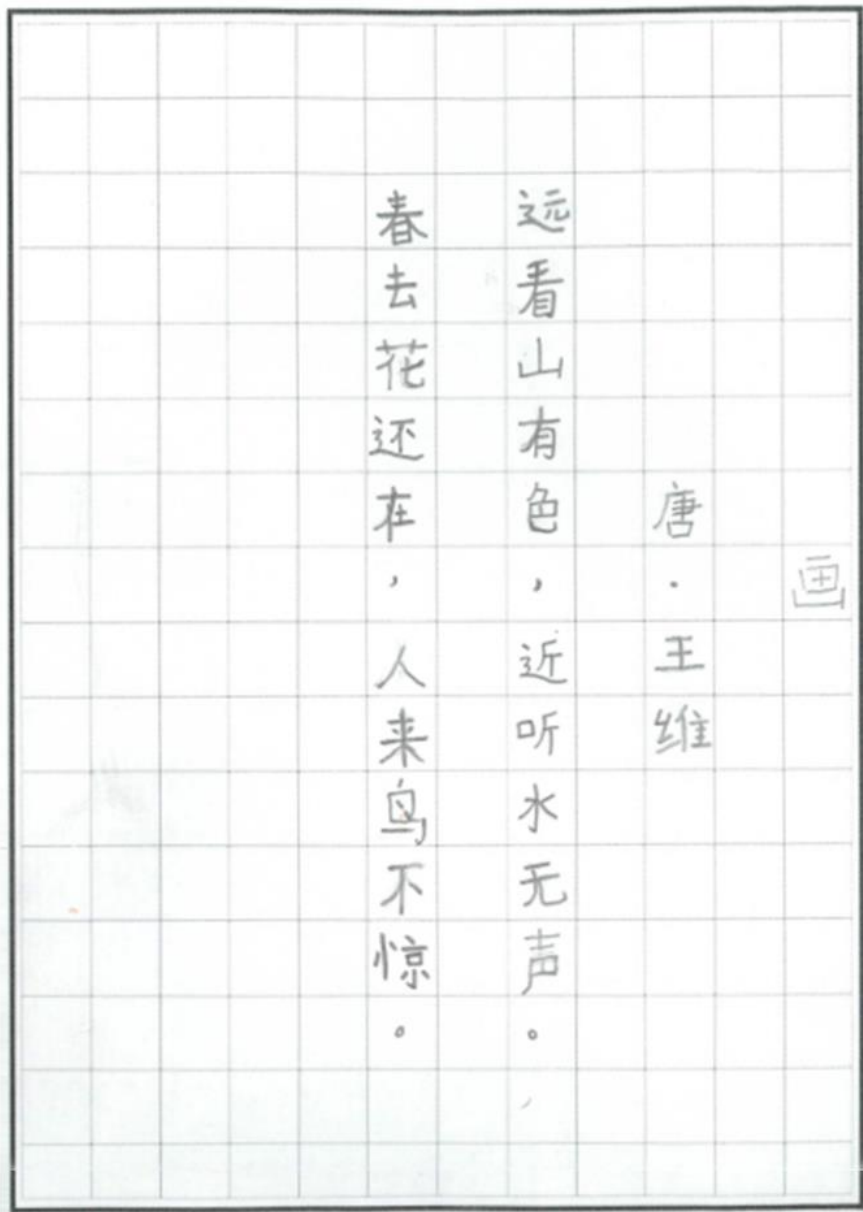 画
唐·王维
远看山有色，近听水无声。
春去花还在，人来鸟不惊。